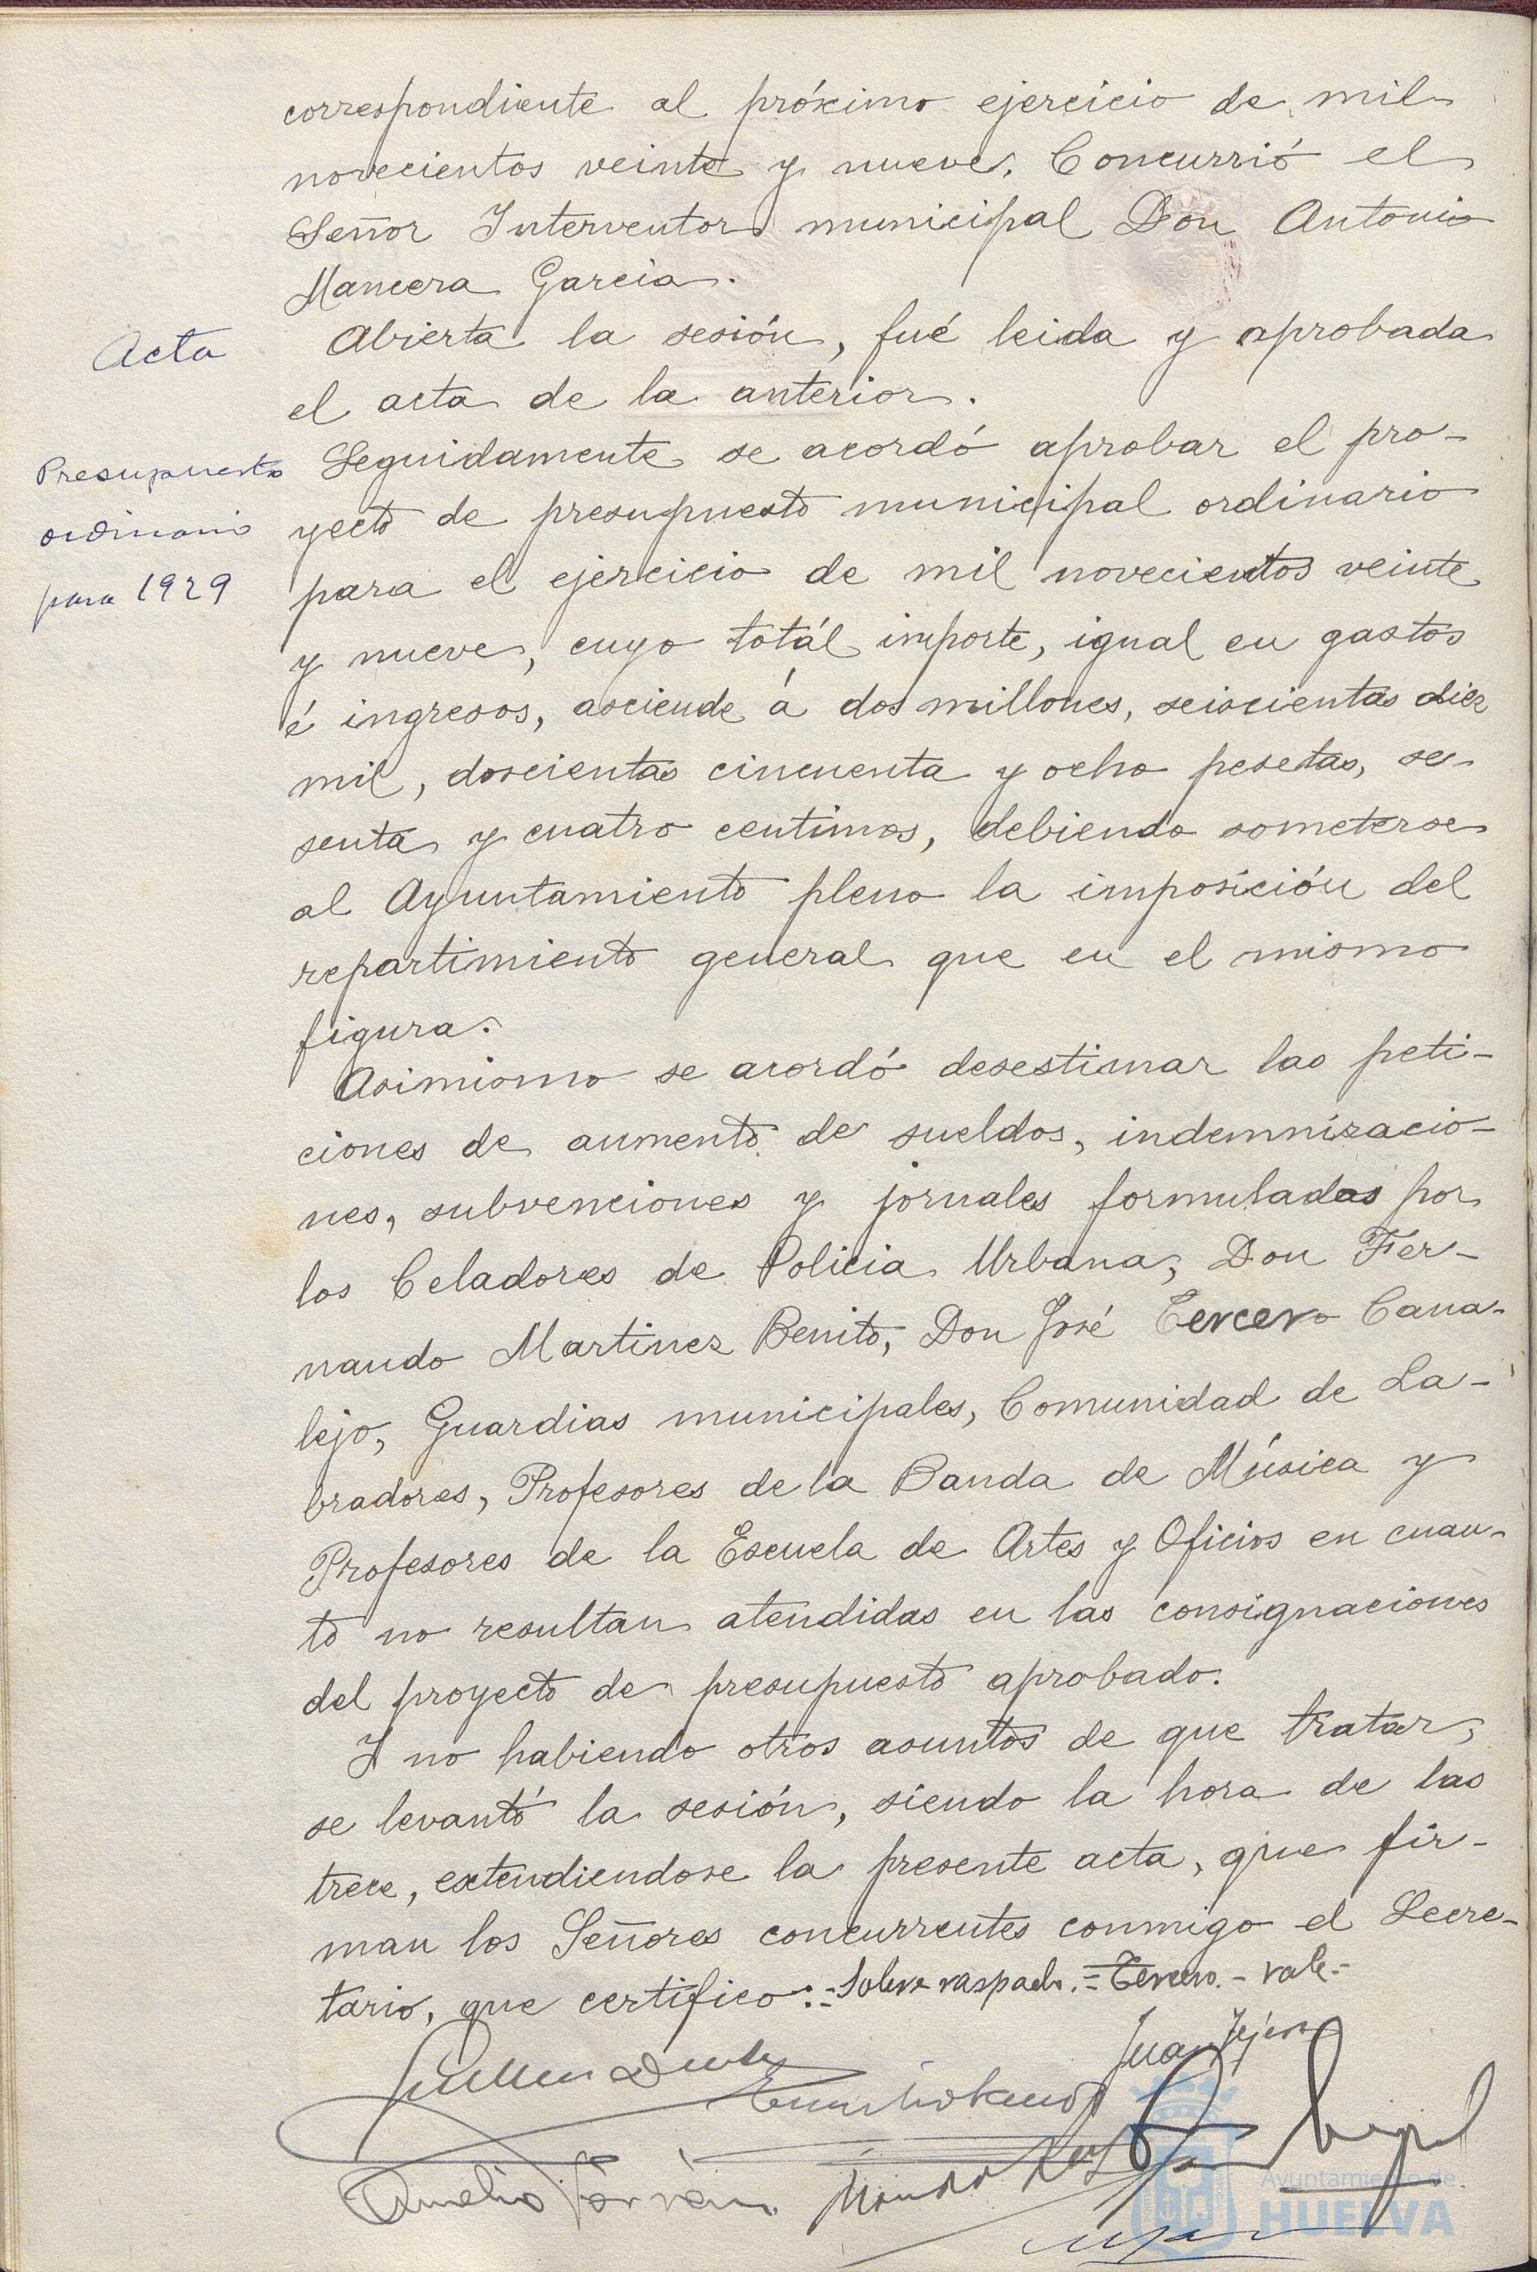 correspondiente al próximo ejercicio de mil
novecientos veinte y nueve. Concurrió el
Señor Interventor municipal Don Antonio
Mancera Garcia.
Acta
Abierta la sesión, fué leida y aprobada
el acta de la anterior.
Presupuesto
ordinario
para 1929
Seguidamente se acordó aprobar el pro-
yecto de presupuesto municipal ordinario
para el ejercicio de mil novecientos veinte
y nueve, cuyo totál importe, igual en gastos
é ingresos, asciende á dos millones, seiscientas diez
mil, doscientas cincuenta y ocho pesetas, se-
senta y cuatro centimos, debiendo someterse
al Ayuntamiento pleno la imposición del
repartimiento general que en el mismo
figura.
Asimismo se acordó desestimar las peti-
ciones de aumento de sueldos, indemnizacio-
nes, subvenciones y jornales formuladas por
los Celadores de Policia Urbana, Don Fer-
nando Martinez Benito, Don José Tercero Cana-
lejo, Guardias municipales, Comunidad de La-
bradores, Profesores de la Banda de Música y
Profesores de la Escuela de Artes y Oficios en cuan-
to no resultan atendidas en las consignaciones
del proyecto de presupuesto aprobado.
Y no habiendo otros asuntos de que tratar,
se levantó la sesión, siendo la hora de las
trece, extendiendose la presente acta, que fir-
man los Señores concurrentes conmigo el Secre-
tario, que certifico:=Sobre raspado.=Tercero.-vale.-
Juan
Ayuntamiento de
HUELVA